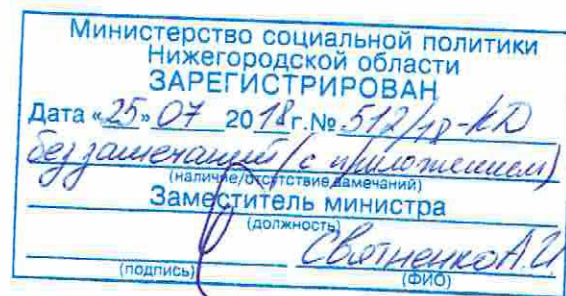 Министерство социальной политики
Нижегородской области
ЗАРЕГИСТРИРОВАН
Дата «25» 07 2018г. № 512/18-КД
без замечаний (с приложением)
(наличие/отсутствие замечаний)
Заместитель министра
(должность)
Святненко А.И
(подпись) (ФИО)